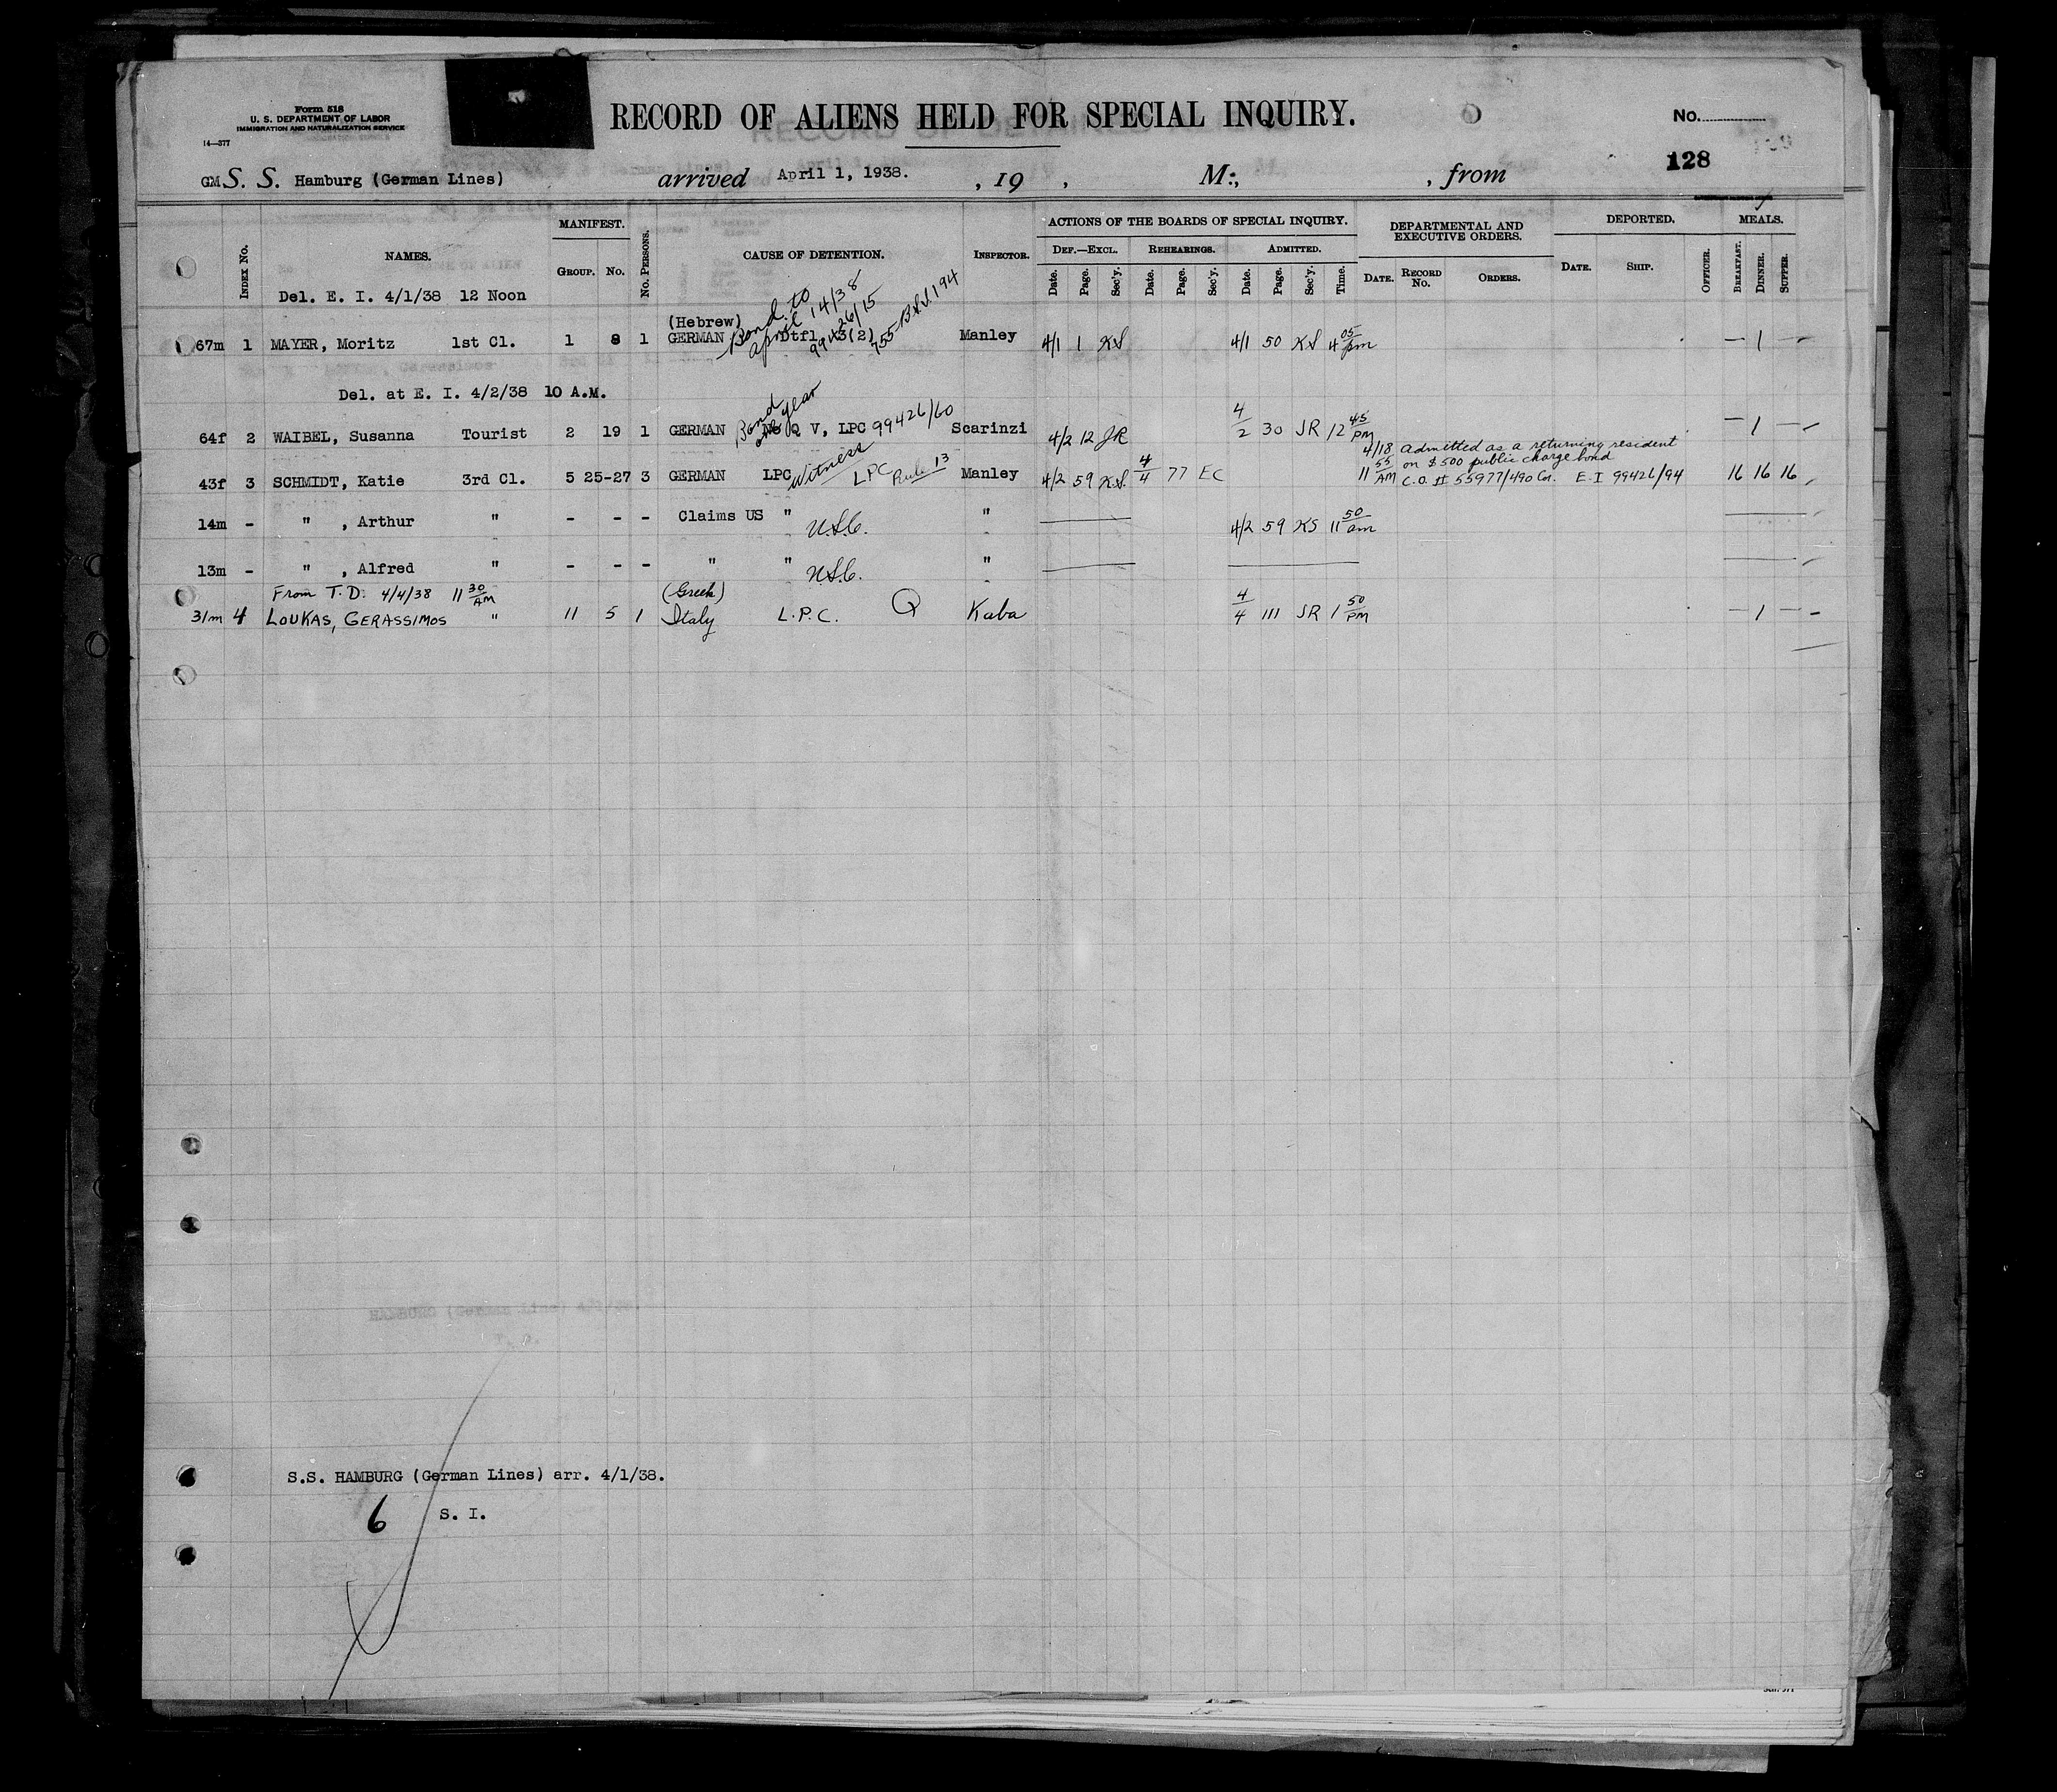 Form 518
U. S. DEPARTMENT OF LABOR
IMMIGRATION AND NATURALIZATION SERVICE
14—377
RECORD OF ALIENS HELD FOR SPECIAL INQUIRY.
No.
128
GM S. S. Hamburg (German Lines) arrived April 1, 1938. , 19 , M., , from
INDEX No. NAMES. MANIFEST. GROUP. No. No. PERSONS. CAUSE OF DETENTION. INSPECTOR. ACTIONS OF THE BOARDS OF SPECIAL INQUIRY. DEF.—EXCL. Date. Page. Sec'y. REHEARINGS. Date. Page. Sec'y. ADMITTED. Date. Page. Sec'y. Time. DEPARTMENTAL AND EXECUTIVE ORDERS. DATE. RECORD No. ORDERS. DEPORTED. DATE. SHIP. OFFICER. MEALS. BREAKFAST. DINNER. SUPPER.
Del. E. I. 4/1/38 12 Noon
67m 1 MAYER, Moritz 1st Cl. 1 8 1 (Hebrew) GERMAN Bond to April 14/38 99426/15 755 B.S.I. 194 Manley 4/1 1 KS 4/1 50 KS 4 05 pm — 1 —
Del. at E. I. 4/2/38 10 A.M.
64f 2 WAIBEL, Susanna Tourist 2 19 1 GERMAN Bond one year Q V, LPC 99426/60 Scarinzi 4/2 12 JR 4/2 30 JR 12 45 PM — 1 —
43f 3 SCHMIDT, Katie 3rd Cl. 5 25-27 3 GERMAN LPC Witness LPC Rule 13 Manley 4/2 59 KS. 4/4 77 EC 4/18 11 55 AM admitted as a returning resident on $500 public charge bond C.O. # 55977/490 Cor. E.I 99426/94 16 16 16
14m - " , Arthur " - - - Claims US " U.S.C. " 4/2 59 KS 11 50 am
13m - " , Alfred " - - - " " U.S.C. "
From T.D. 4/4/38 11 30 AM
31m 4 LOUKAS, GERASSIMOS " 11 5 1 (Greek) Italy L.P.C. Q Kaba 4/4 111 JR 1 50 PM — 1 —
S.S. HAMBURG (German Lines) arr. 4/1/38.
6 S. I.